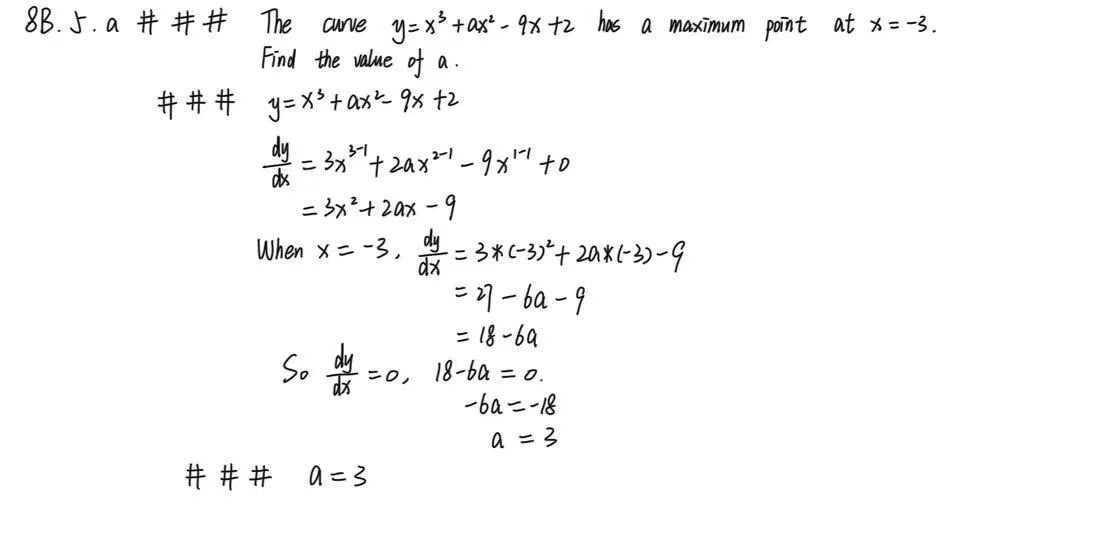 8B. 5. a # # # The curve y = x³ + ax² - 9x + 2 has a maximum point at x = -3.
Find the value of a.
# # # y = x³ + ax² - 9x + 2
dy/dx = 3x³⁻¹ + 2ax²⁻¹ - 9x¹⁻¹ + 0
= 3x² + 2ax - 9
When x = -3, dy/dx = 3*(-3)² + 2a*(-3) - 9
= 27 - 6a - 9
= 18 - 6a
So dy/dx = 0, 18 - 6a = 0.
-6a = -18
a = 3
# # # a = 3